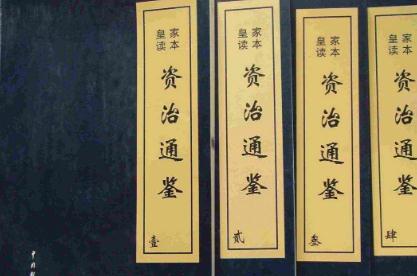 皇家读本
资治通鉴
壹
皇家读本
资治通鉴
贰
皇家读本
资治通鉴
叁
皇家读本
资治通鉴
肆
中国